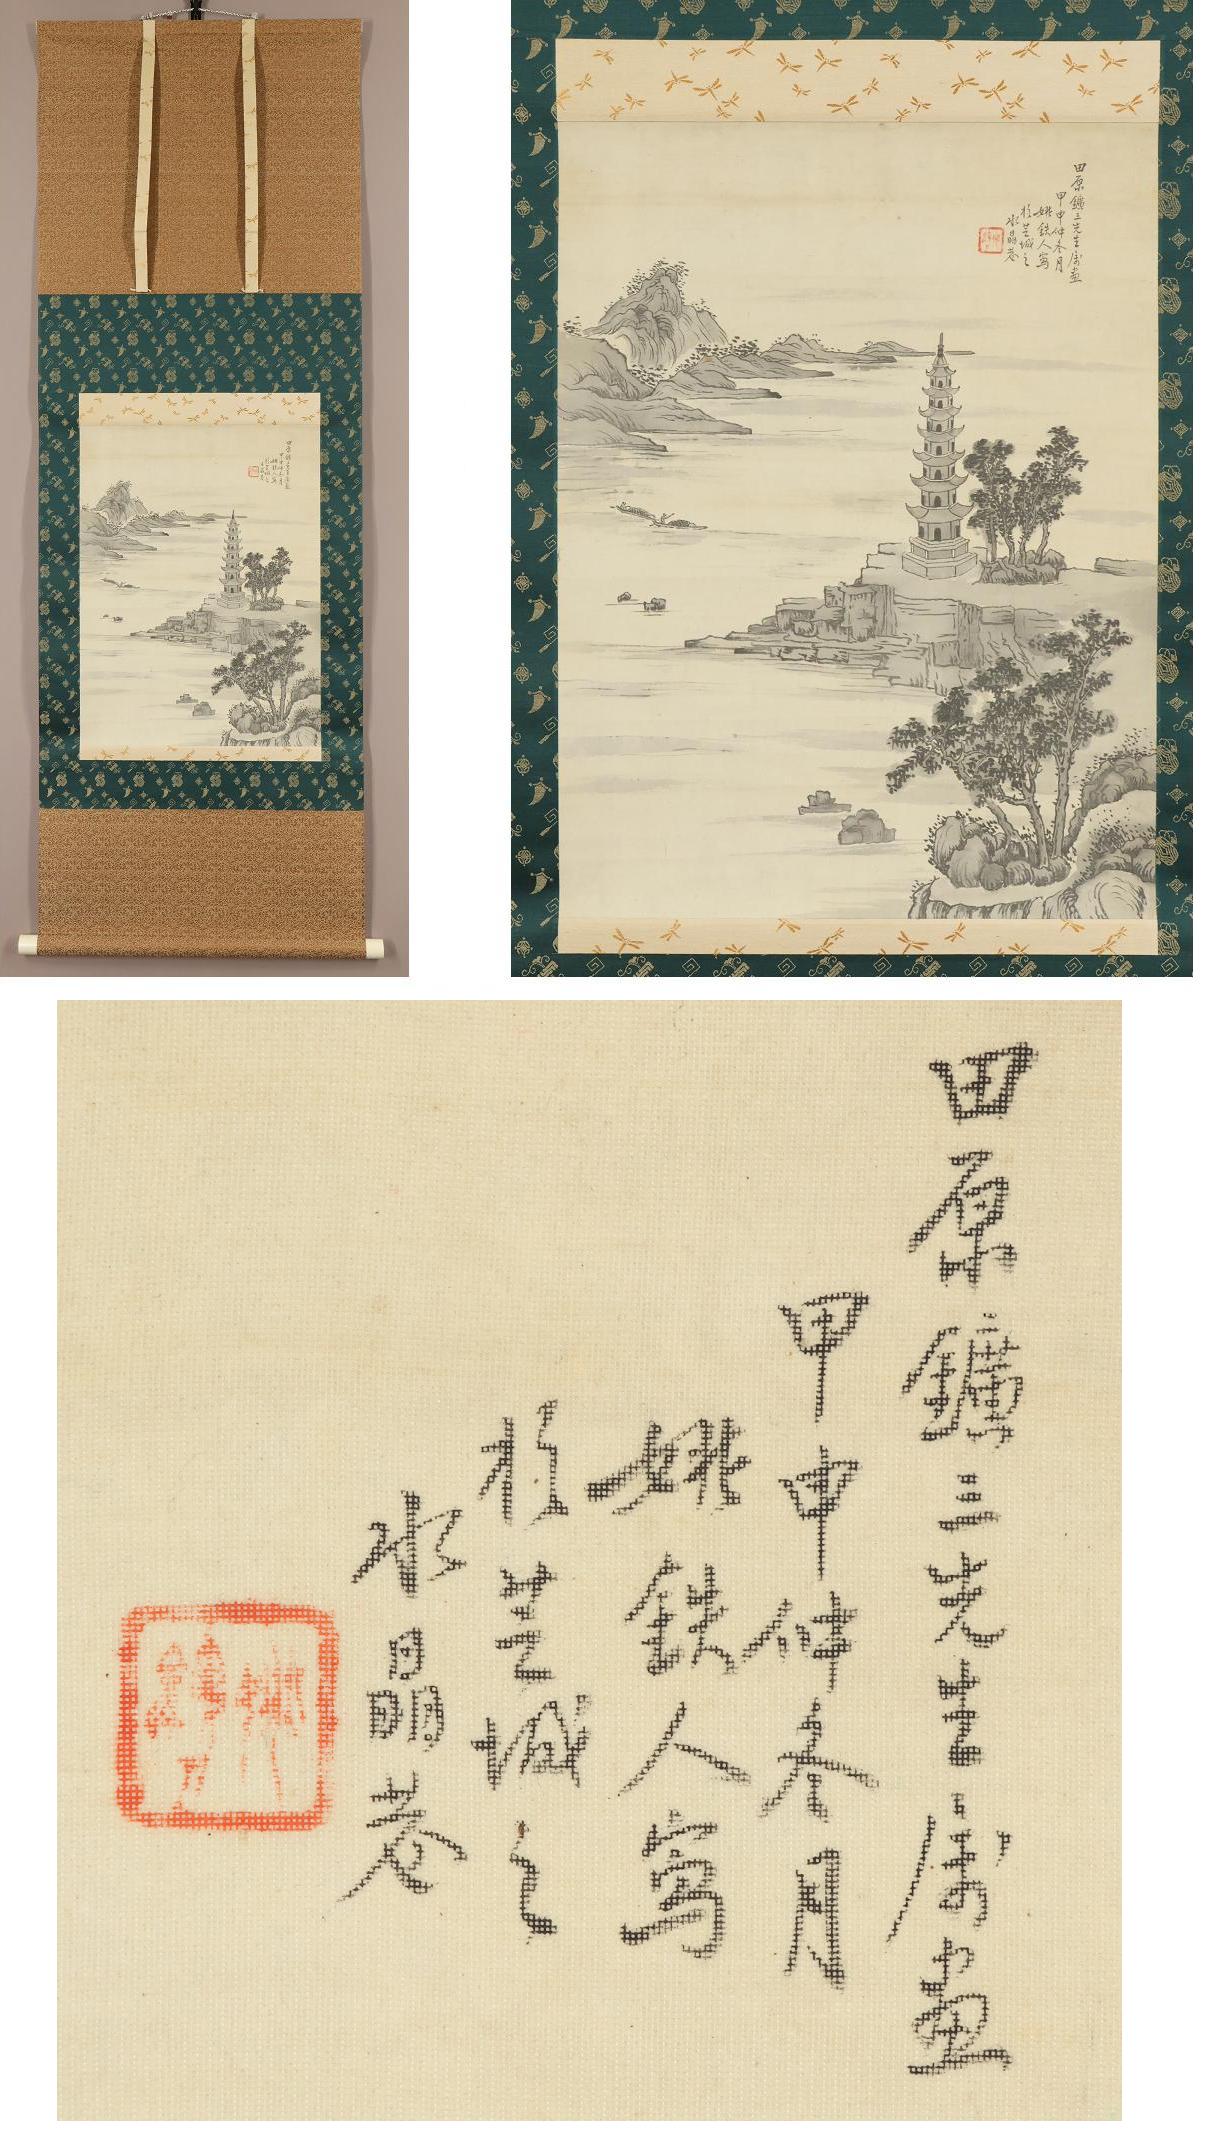 田原鑛三先生属画
甲申仲冬月
姚鉄人写
於芝城之
水晶巷